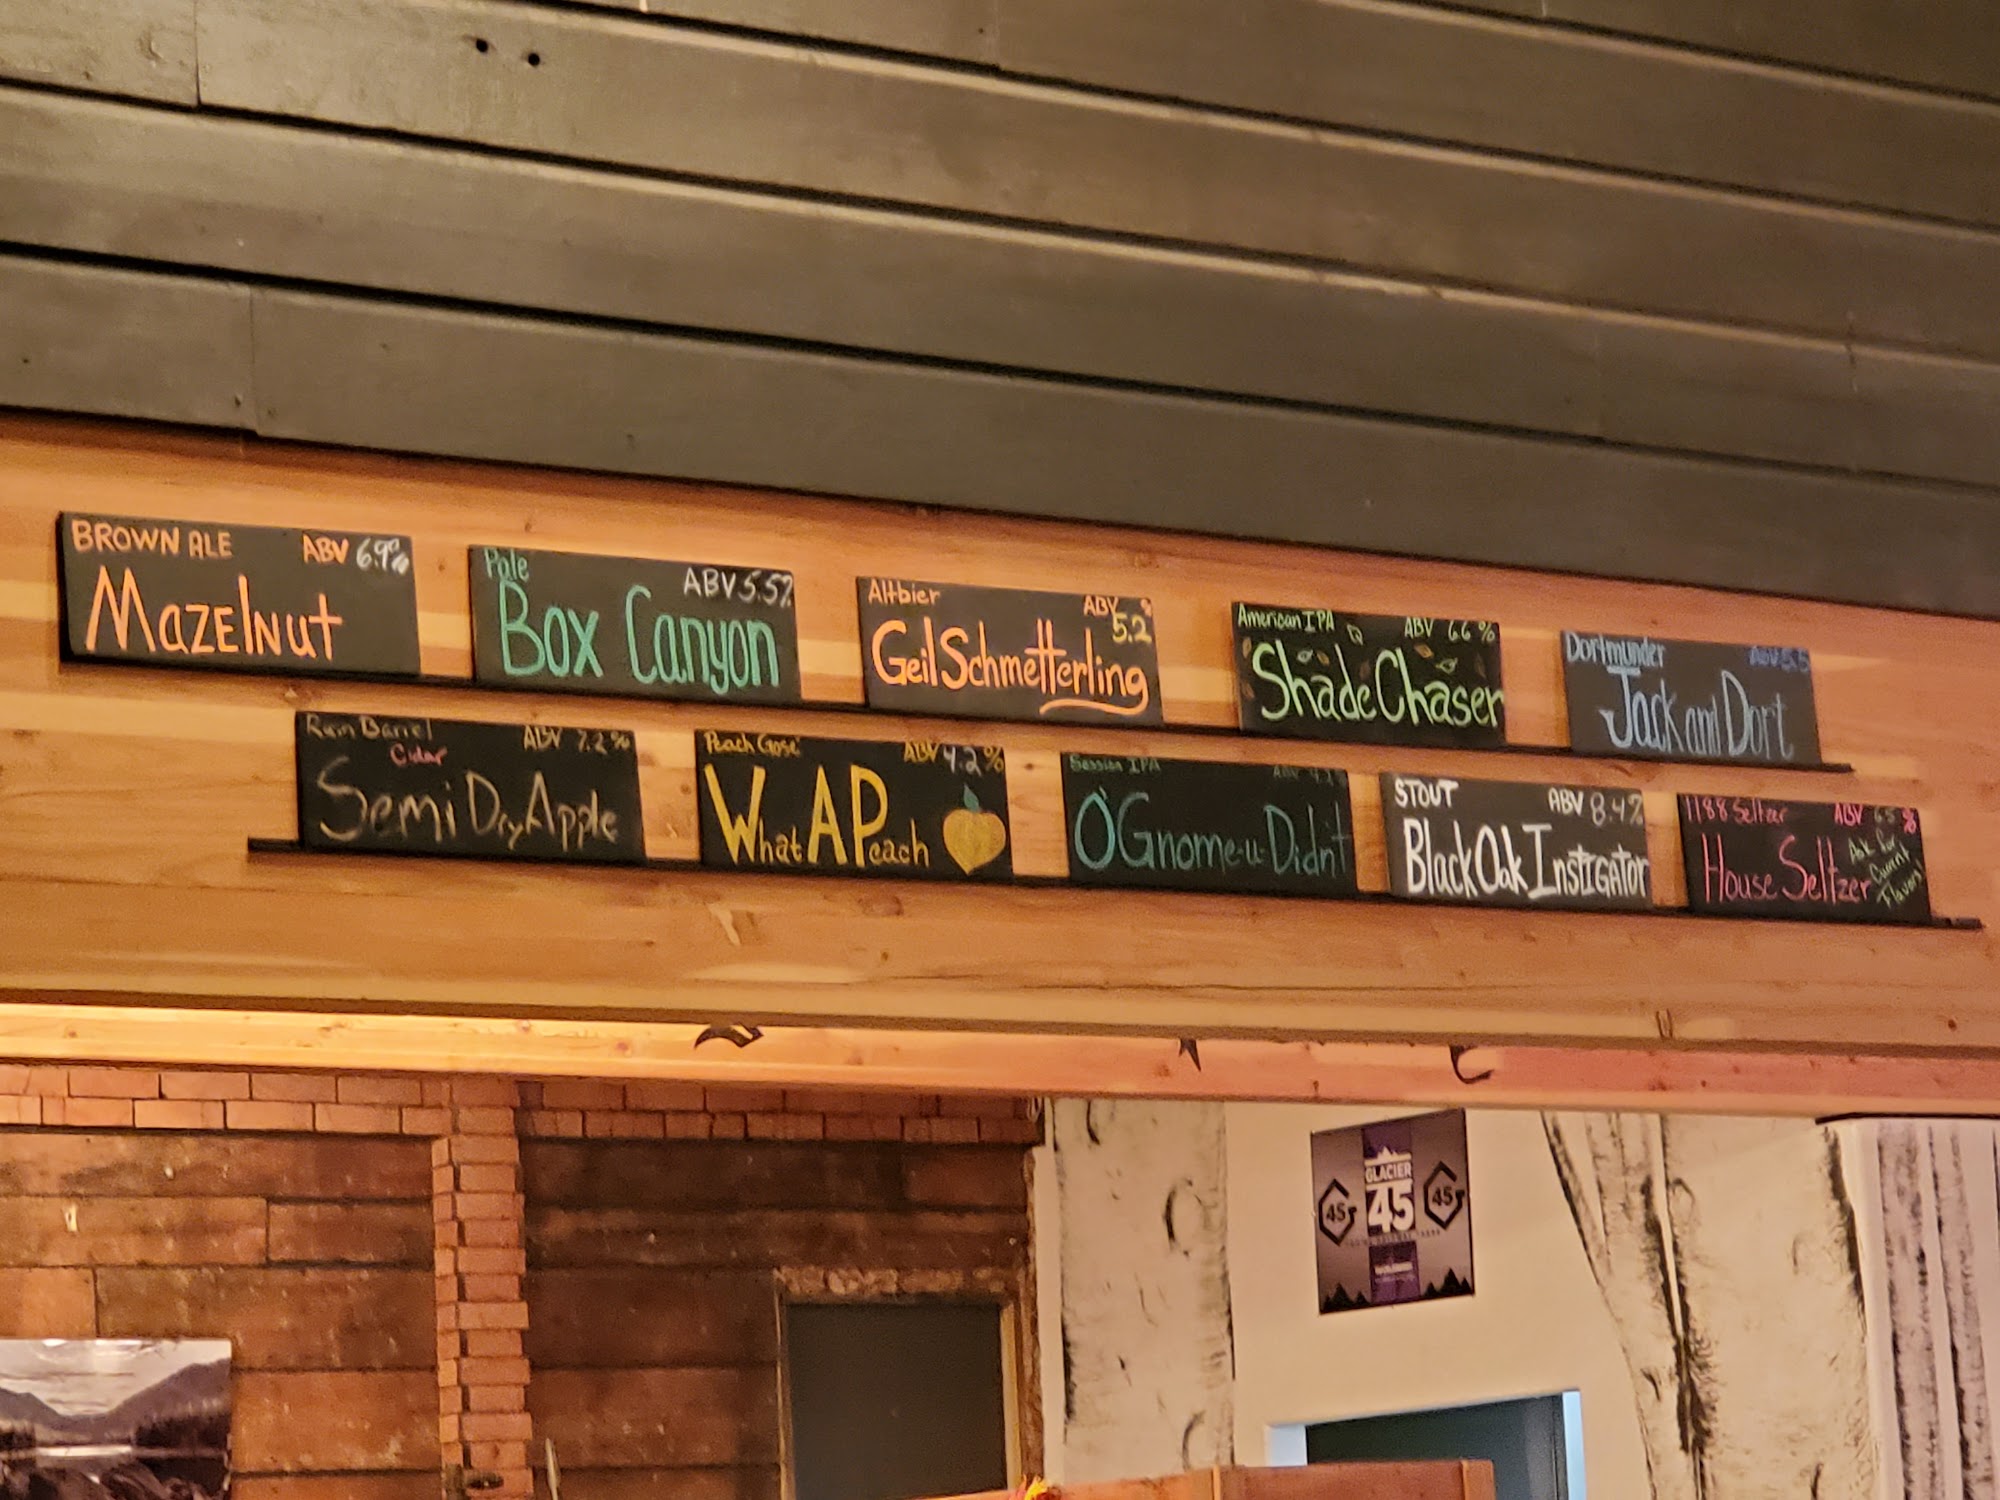 BROWN ALE ABV 6.9%
MAZElNut
Pale ABV 5.5%
Box Canyon
Altbier ABV %
5.2
GeilSchmetterling
American IPA ABV 6.6 %
ShadeChaser
Dortmunder ABV 5.5
Jack and Dort
Rain Barrel ABV 7.2%
Cidar
Semi Dry Apple
Peach Gose ABV 4.2%
What A Peach
Session IPA ABV
O'Gnome-u-Didn't
STOUT ABV 8.4%
Black Oak InstIGATOr
1188 Seltzer ABV 6.5 %
House Seltzer
Ask for
Current
Flavors!
GLACIER
45 45 45